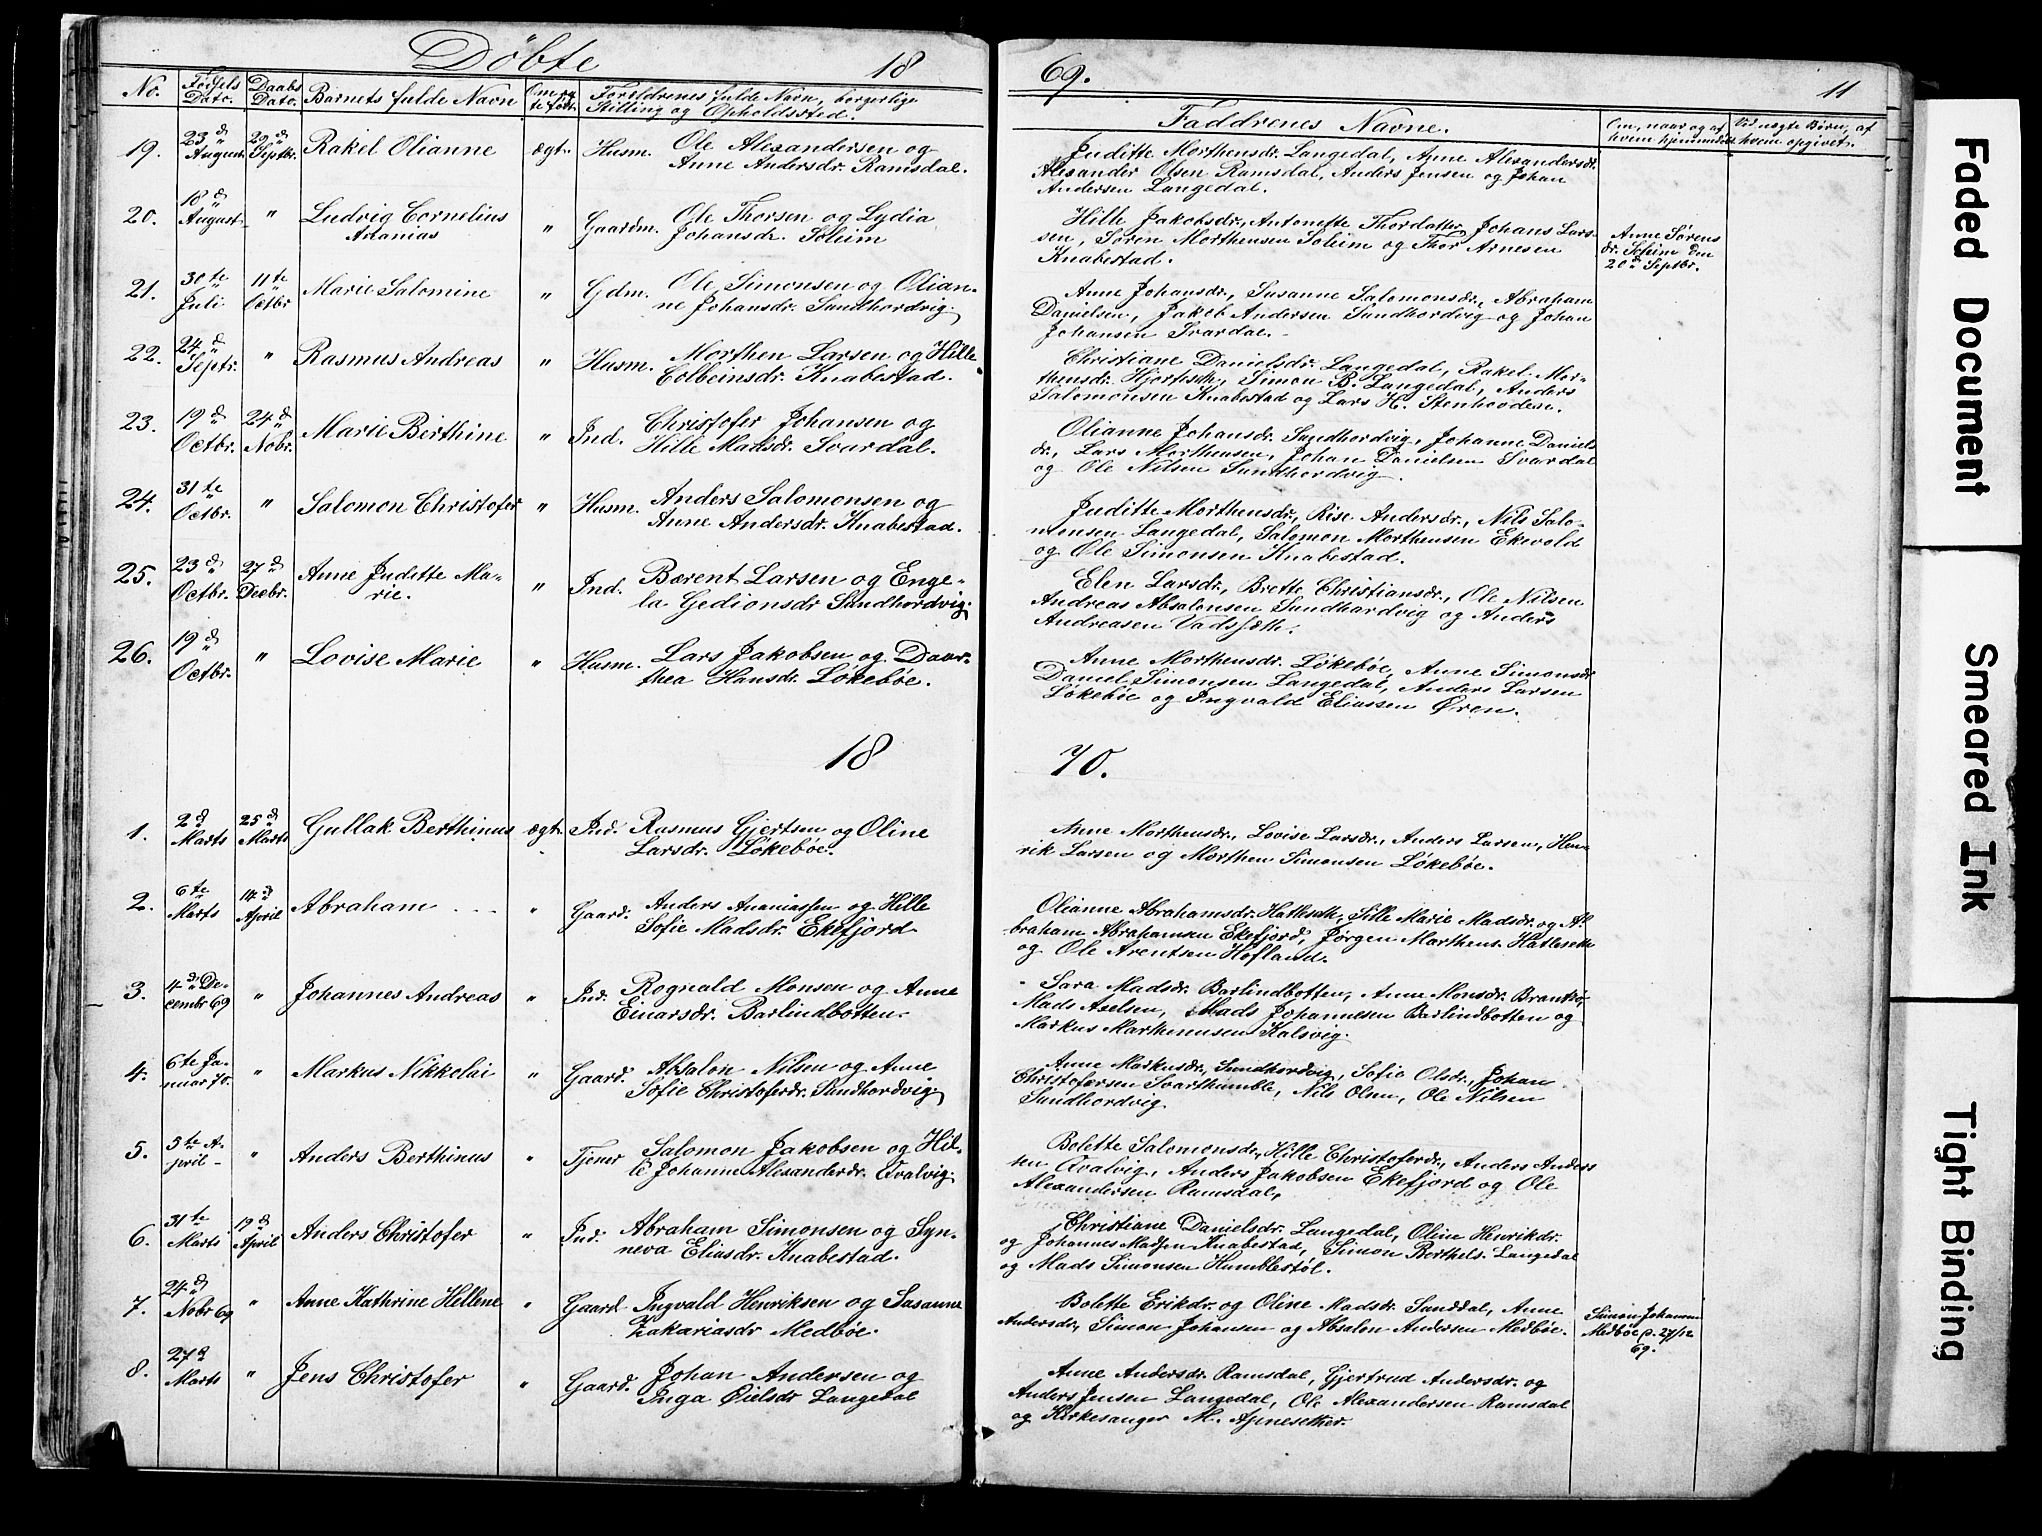 Døbte 18
69. 11
No. Fødsels Dato. Daabs Dato. Barnets fulde Navn Om ægte født. Forældrenes fulde Navn, borgerlige Stilling og Opholdssted.
Faddrenes Navne. Om, naar og af hvem hjemmedøbt Ved uægte Børn, af hvem opgivet.
19. 23d August 29d Septbr. Rakel Olianne ægt. Husm. Ole Alexandersen og
Anne Andersdr. Ramsdal.
Juditte Morthensdr. Langedal, Anne Alexandersdr.
Alexander Olsen Ramsdal, Anders Jensen og Johan
Andersen Langedal.
20. 18d August " Ludvig Cornelius " Gaardm. Ole Thorsen og Lydia
Ananias Johansdr. Soleim
Hille Jakobsdr., Antonette Thordatter, Johans Lars-
sen, Søren Morthensen Soleim og Thor Arnesen
Knabestad.
Anne Sørens
dr. Soleim den
20d Septbr.
21. 30te Juli 11te Octbr Marie Salomine " Gdm. Ole Simonsen og Olian-
ne Johansdr. Sandhordvig
Anne Johansdr., Susanne Salomonsdr., Abraham
Danielsen, Jakob Andersen Sundhordvig og Johan
Johansen Svardal.
22. 24d Septr. " Rasmus Andreas " Husm. Morthen Larsen og Hille
Colbeinsdr. Knabestad.
Christiane Danielsdr. Langedal, Rakel Mor-
thensdr. Hjorteseth, Simon B. Langedal, Anders
Salomonsen Knabestad og Lars H. Stenhovden.
23. 19d Octbr. 24d Nobr. Marie Birthine " Ind. Christofer Johansen og
Hille Madsdr. Svardal.
Olianne Johansdr. Sundhordvig, Johanne Daniels
dr., Lars Morthensen, Johan Danielsen Svardal
og Ole Nilsen Sundhordvig.
24. 31te Octbr. " Salomon Christofer " Husm. Anders Salomonsen og
Anne Andersdr. Knabestad.
Juditte Morthensdr., Rise Andersdr., Nils Salo-
monsen Langedal, Salomon Morthensen Ekevold
og Ole Simonsen Knabestad.
25. 23d Octbr. 27d Decbr. Anne Juditte Ma-
rie. " Ind. Bærent Larsen og Enge-
la Gedionsdr Sundhordvig.
Elen Larsdr., Brette Christiansdr., Ole Nilsen
Andreas Absalonsen Sundhordvig og Anders
Andreasen Vadsæth.
26. 19d Octbr. " Lovise Marie " Husm. Lars Jakobsen og Door-
thea Hansdr. Løkebøe.
Anne Morthensdr. Løkebøe, Anne Simonsdr
Daniel Simonsen Langedal, Anders Larsen
Løkebøe og Ingvald Eliassen Øren.
18 70.
1. 2d Marts 25d Marts Gullak Berthinus ægt. Ind. Rasmus Gjertsen og Oline
Larsdr. Løkebøe.
Anne Morthensdr., Lovise Larsdr., Anders Larsen, Hen-
rik Larsen og Morthen Simonsen Løkebøe.
2. 6te Marts 14d April Abraham " Gaard. Anders Ananiassen og Hille
Sofie Madsdr. Ekefjord
Olianne Abrahamsdr. Hatleseth, Sille Marie Madsdr. og A-
braham Abrahamsen Ekefjord, Jørgen Marthens. Hatleseth
og Ole Arentsen Hofland.
3. 4d De-
cembr 69 " Johannes Andreas " Ind. Rognald Monsen og Anne
Einarsdr. Barlindbotten.
Sara Madsdr. Barlindbotten, Anne Monsdr. Brantsø,
Mads Axelsen, Mads Johannesen Barlindbotten og
Markus Marthinusen Kalsvig.
4. 6te Ja-
nuar 70. " Markus Nikkolai " Gaard. Absalon Nilsen og Anne
Sofie Christoferdr. Sundhordvig
Anne Markusdr. Sundhordvig, Sofie Olsdr., Johan
Christofersen Svarthumle, Nils Olsen, Ole Nilsen
Sundhordvig
5. 5te A-
pril " Anders Berthinus " Tjener Salomon Jakobsen og Hil-
le Johanne Alexanderdr. Qvalvig.
Bolette Salomonsdr., Hille Christoferdr., Anders Anders
sen Qvalvig, Anders Jakobsen Ekefjord og Ole
Alexandersen Ramsdal,
6. 31te Marts 19d April Anders Christofer " Ind. Abraham Simonsen og Syn-
neva Eliasdr. Knabestad.
Christiane Danielsdr. Langedal, Oline Henrikdr.
og Johannes Madsen Knabestad, Simon Berthels. Langedal
og Mads Simonsen Humblestøl.
7. 24d Nobr 69 " Anne Kathrine Hellene " Gaard Ingvald Henriksen og Susanne
Zakariasdr Medbøe.
Bolette Erikdr. og Oline Madsdr. Sanddal, Anne
Andersdr., Simon Johansen og Absalon Andersen Medbøe.
Simon Johansen
Medbøe d. 27/12
69.
8. 27d Marts " Jens Christofer " Gaard. Johan Andersen og
Inga Oielsdr Langedal
Anne Andersdr. Ramsdal, Gjertrud Andersdr. og
Anders Jensen Langedal, Ole Alexandersen Ramsdal
og Kirkesanger M. Apnesether.
Faded Document
Smeared Ink
Tight Binding